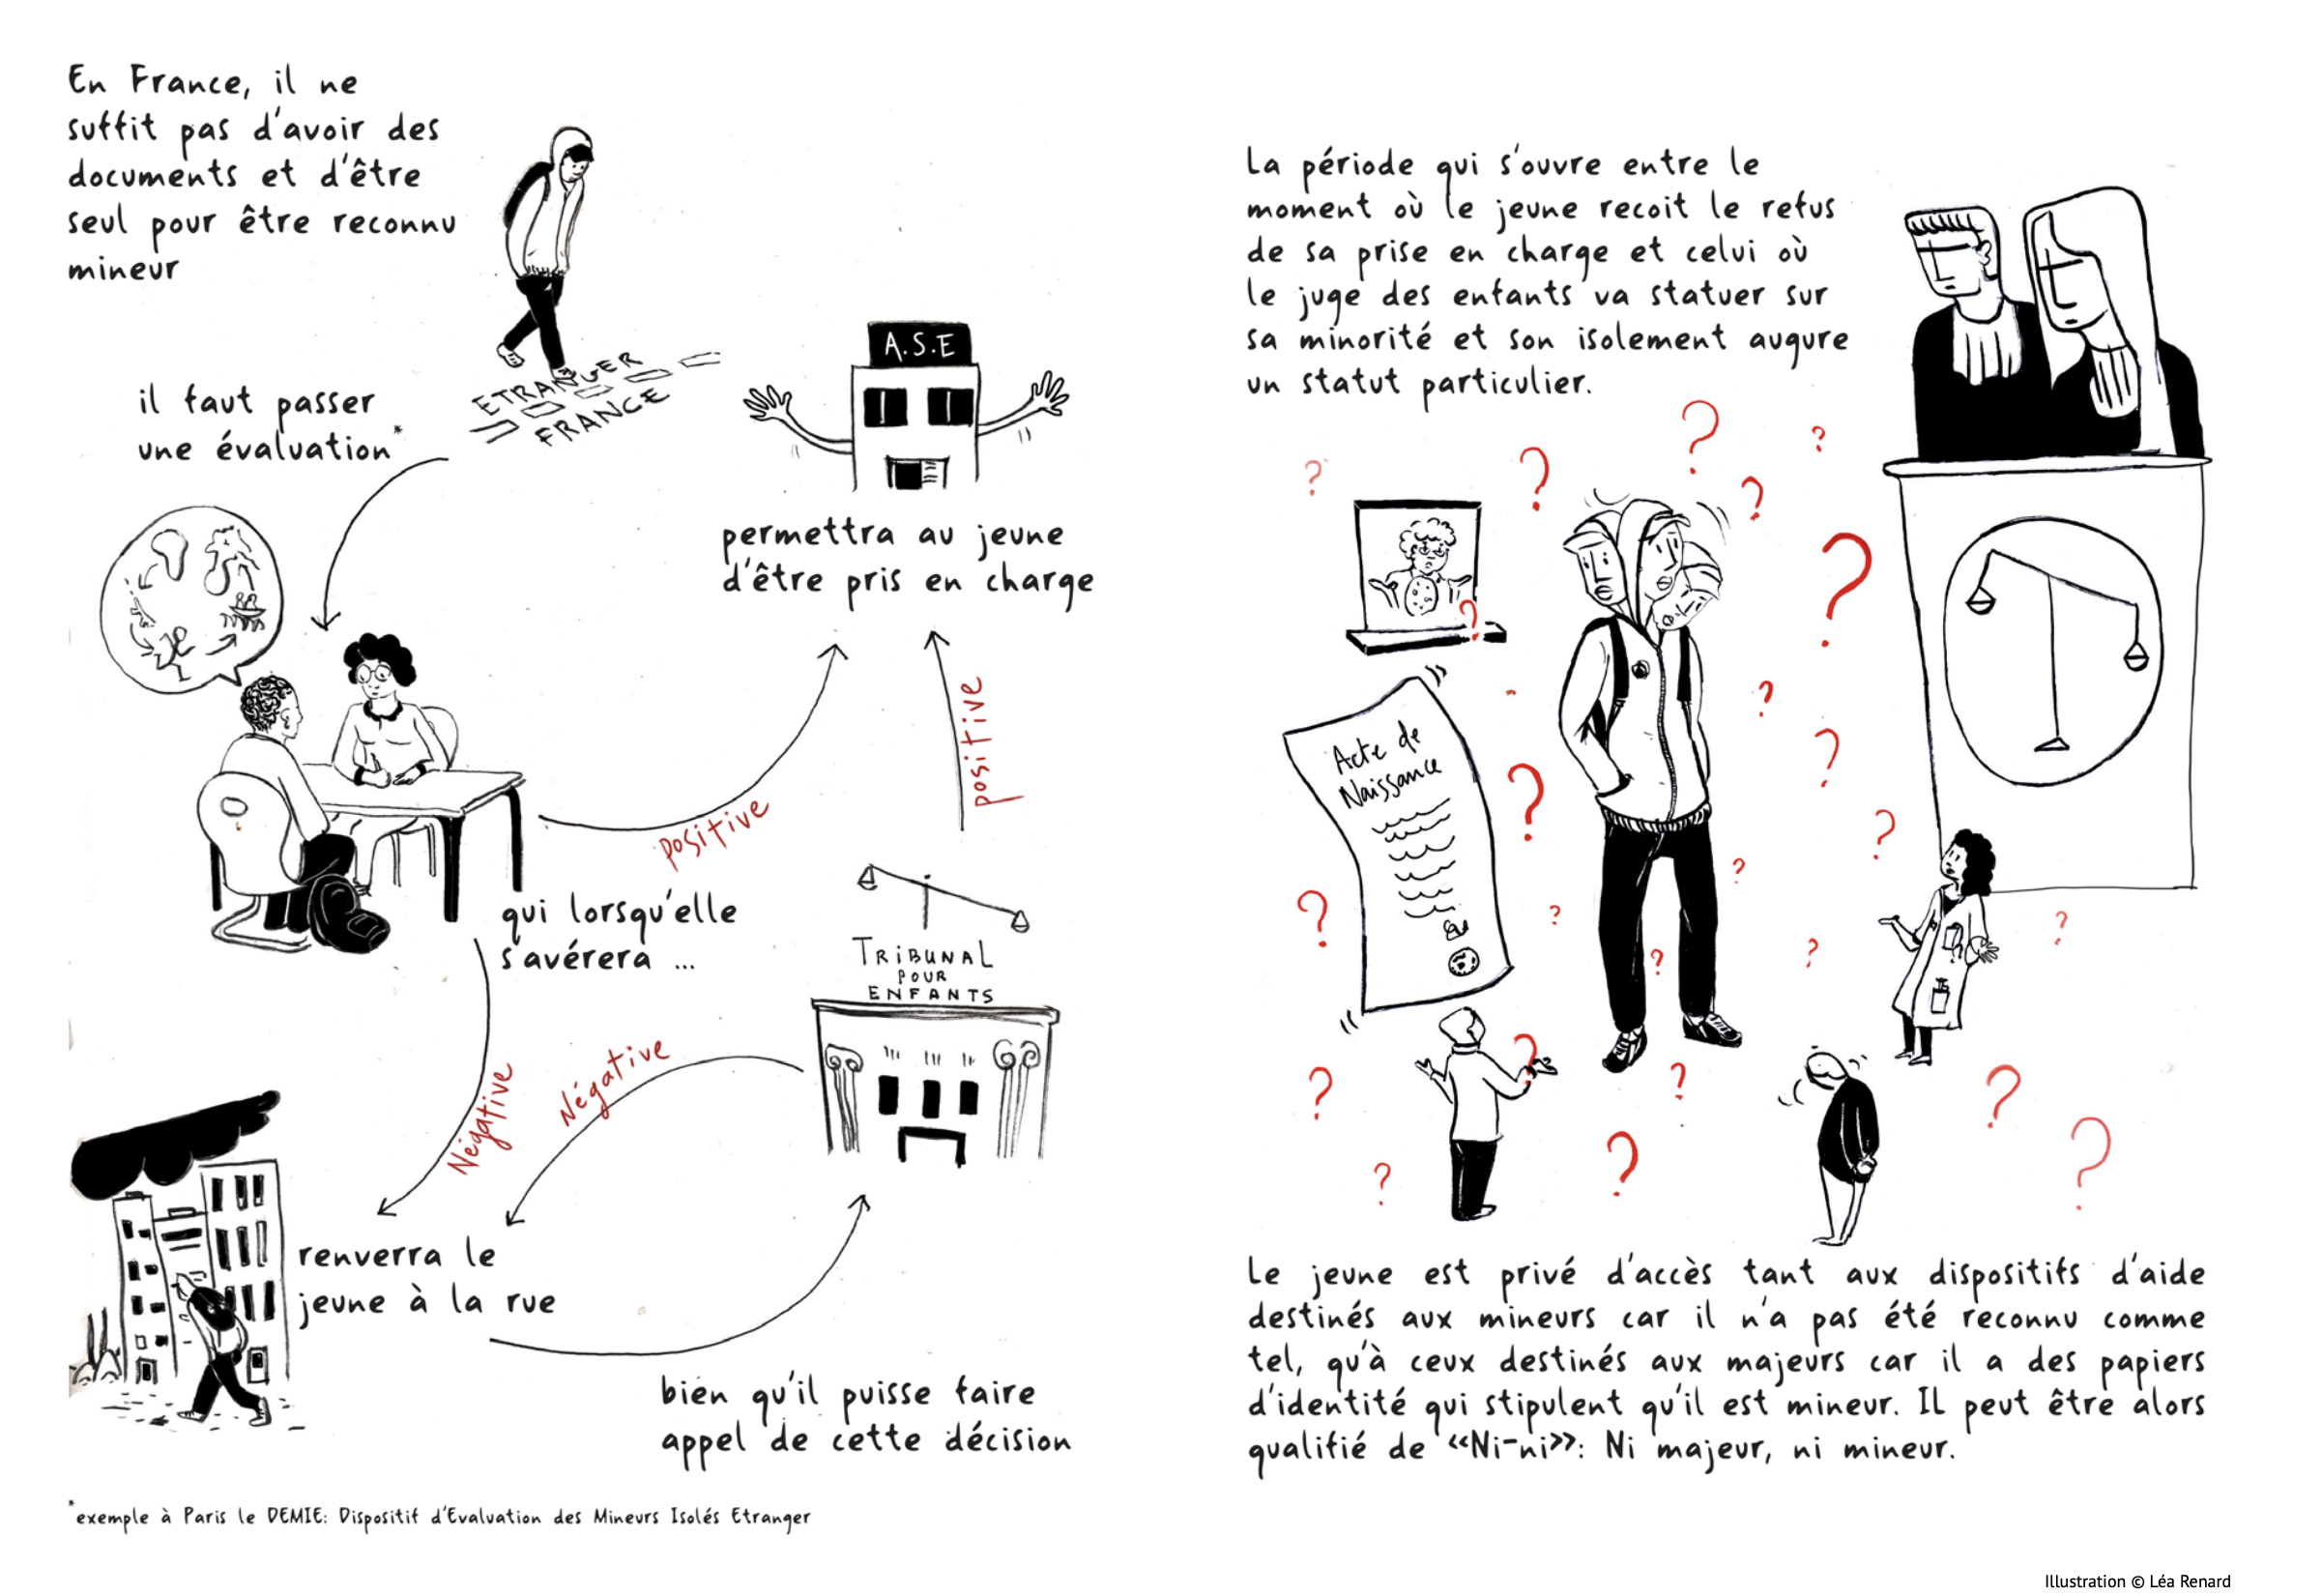 En France, il ne
suffit pas d'avoir des
documents et d'être
seul pour être reconnu
mineur
ETRANGER
FRANCE
il faut passer
une évaluation*
A.S.E
permettra au jeune
d'être pris en charge
positive
positive
qui lorsqu'elle
s'avérera ...
TRIBUNAL
POUR
ENFANTS
Négative
Négative
renverra le
jeune à la rue
bien qu'il puisse faire
appel de cette décision
*exemple à Paris le DEMIE: Dispositif d'Evaluation des Mineurs Isolés Etranger
La période qui s'ouvre entre le
moment où le jeune recoit le refus
de sa prise en charge et celui où
le juge des enfants va statuer sur
sa minorité et son isolement augure
un statut particulier.
? ? ? ? ? ?
Acte de
Naissance
Le jeune est privé d'accès tant aux dispositifs d'aide
destinés aux mineurs car il n'a pas été reconnu comme
tel, qu'à ceux destinés aux majeurs car il a des papiers
d'identité qui stipulent qu'il est mineur. Il peut être alors
qualifié de «Ni-ni»: Ni majeur, ni mineur.
Illustration © Léa Renard